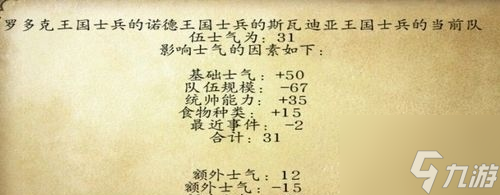 罗多克王国士兵的诺德王国士兵的斯瓦迪亚王国士兵的当前队
伍士气为：31
影响士气的因素如下：
基础士气：+50
队伍规模：-67
统帅能力：+35
食物种类：+15
最近事件：-2
合计：31
额外士气：12
额外士气：-15
九游